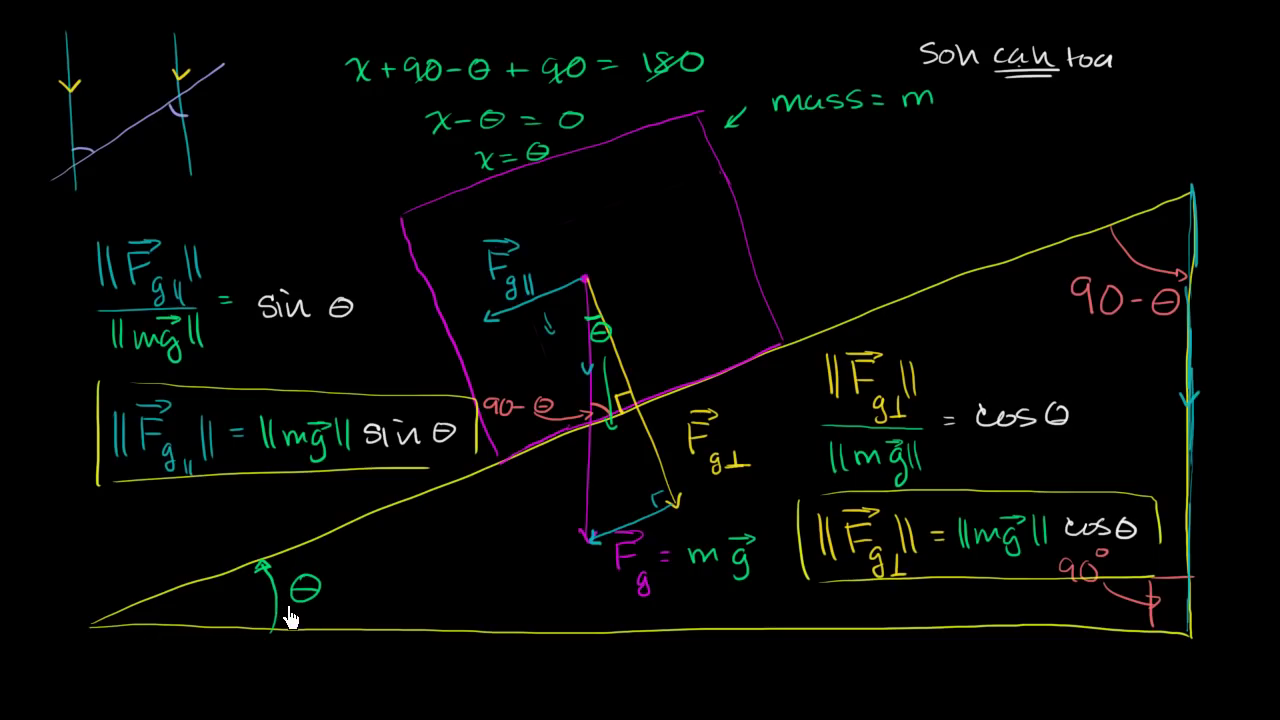 x+90-θ + 90 = 180
x-θ = 0
x = θ
soh cah toa
mass = m
||F⃗g∥|| / ||mg⃗|| = sin θ
F⃗g∥
θ
90-θ
90-θ
||F⃗g∥|| = ||mg⃗|| sin θ
F⃗g⊥
||F⃗g⊥|| / ||mg⃗|| = cos θ
||F⃗g⊥|| = ||mg⃗|| cos θ
F⃗g = mg⃗
90°
θ